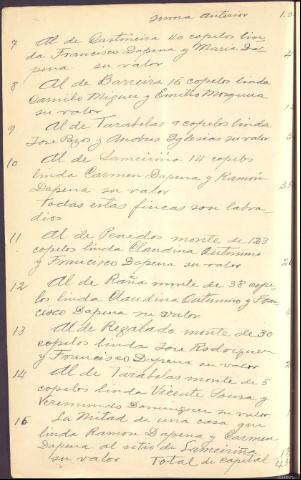 Suma Anterior 13
7 Al de Castiñeira 40 copelos lin
da Francisco Dapena y Maria Da
pena su valor 4
8 Al de Barreira 16 copelos linda
Camilo Miguez y Emilio Mosquera
su valor
9 Al de Tarabelas 9 copelos linda
Jose Pozos y Andres Yglesias su valor 3
10 Al de Lameiriña 14 copelos
linda Carmen Dapena y Ramón
Dapena su valor 35
todas estas fincas son labra
dios
11 Al de Penedos monte de 123
copelos linda Claudina Antunno
y Francisco Dapena su valor 2
12 Al de Raña monte de 38 cope
los linda Claudina Antunno y Fran
cisco Dapena su valor
13 Al de Regalado monte de 30
copelos linda Jose Rodriguez
y Francisco Dapena su valor 2
14 Al de Tarabelas monte de 5
copelos linda Vicente Sousa y
Veremundo Dominguez su valor 1
15 La Mitad de una casa que
linda Ramon Dapena y Carmen
Dapena al sitio de Lameiriña
su valor
Total de Capital 43